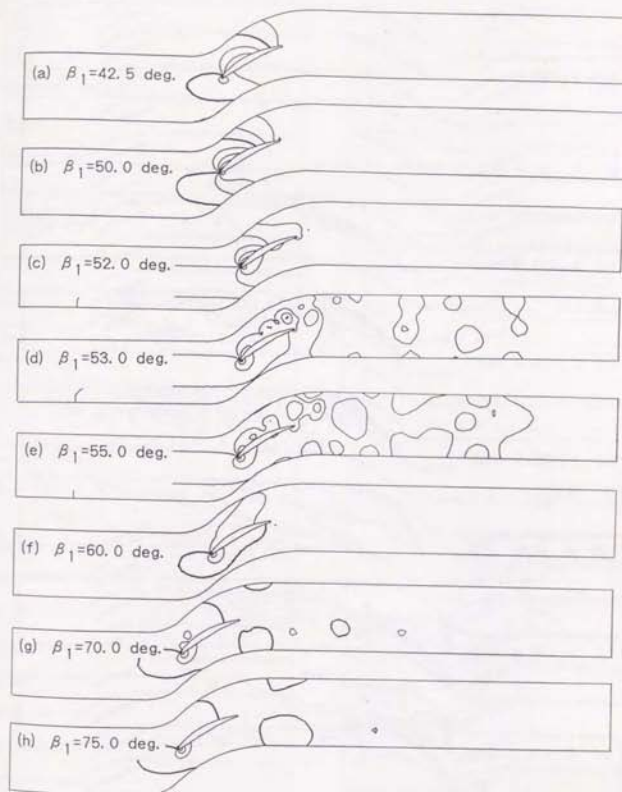 (a) β₁=42.5 deg.
(b) β₁=50.0 deg.
(c) β₁=52.0 deg.
(d) β₁=53.0 deg.
(e) β₁=55.0 deg.
(f) β₁=60.0 deg.
(g) β₁=70.0 deg.
(h) β₁=75.0 deg.